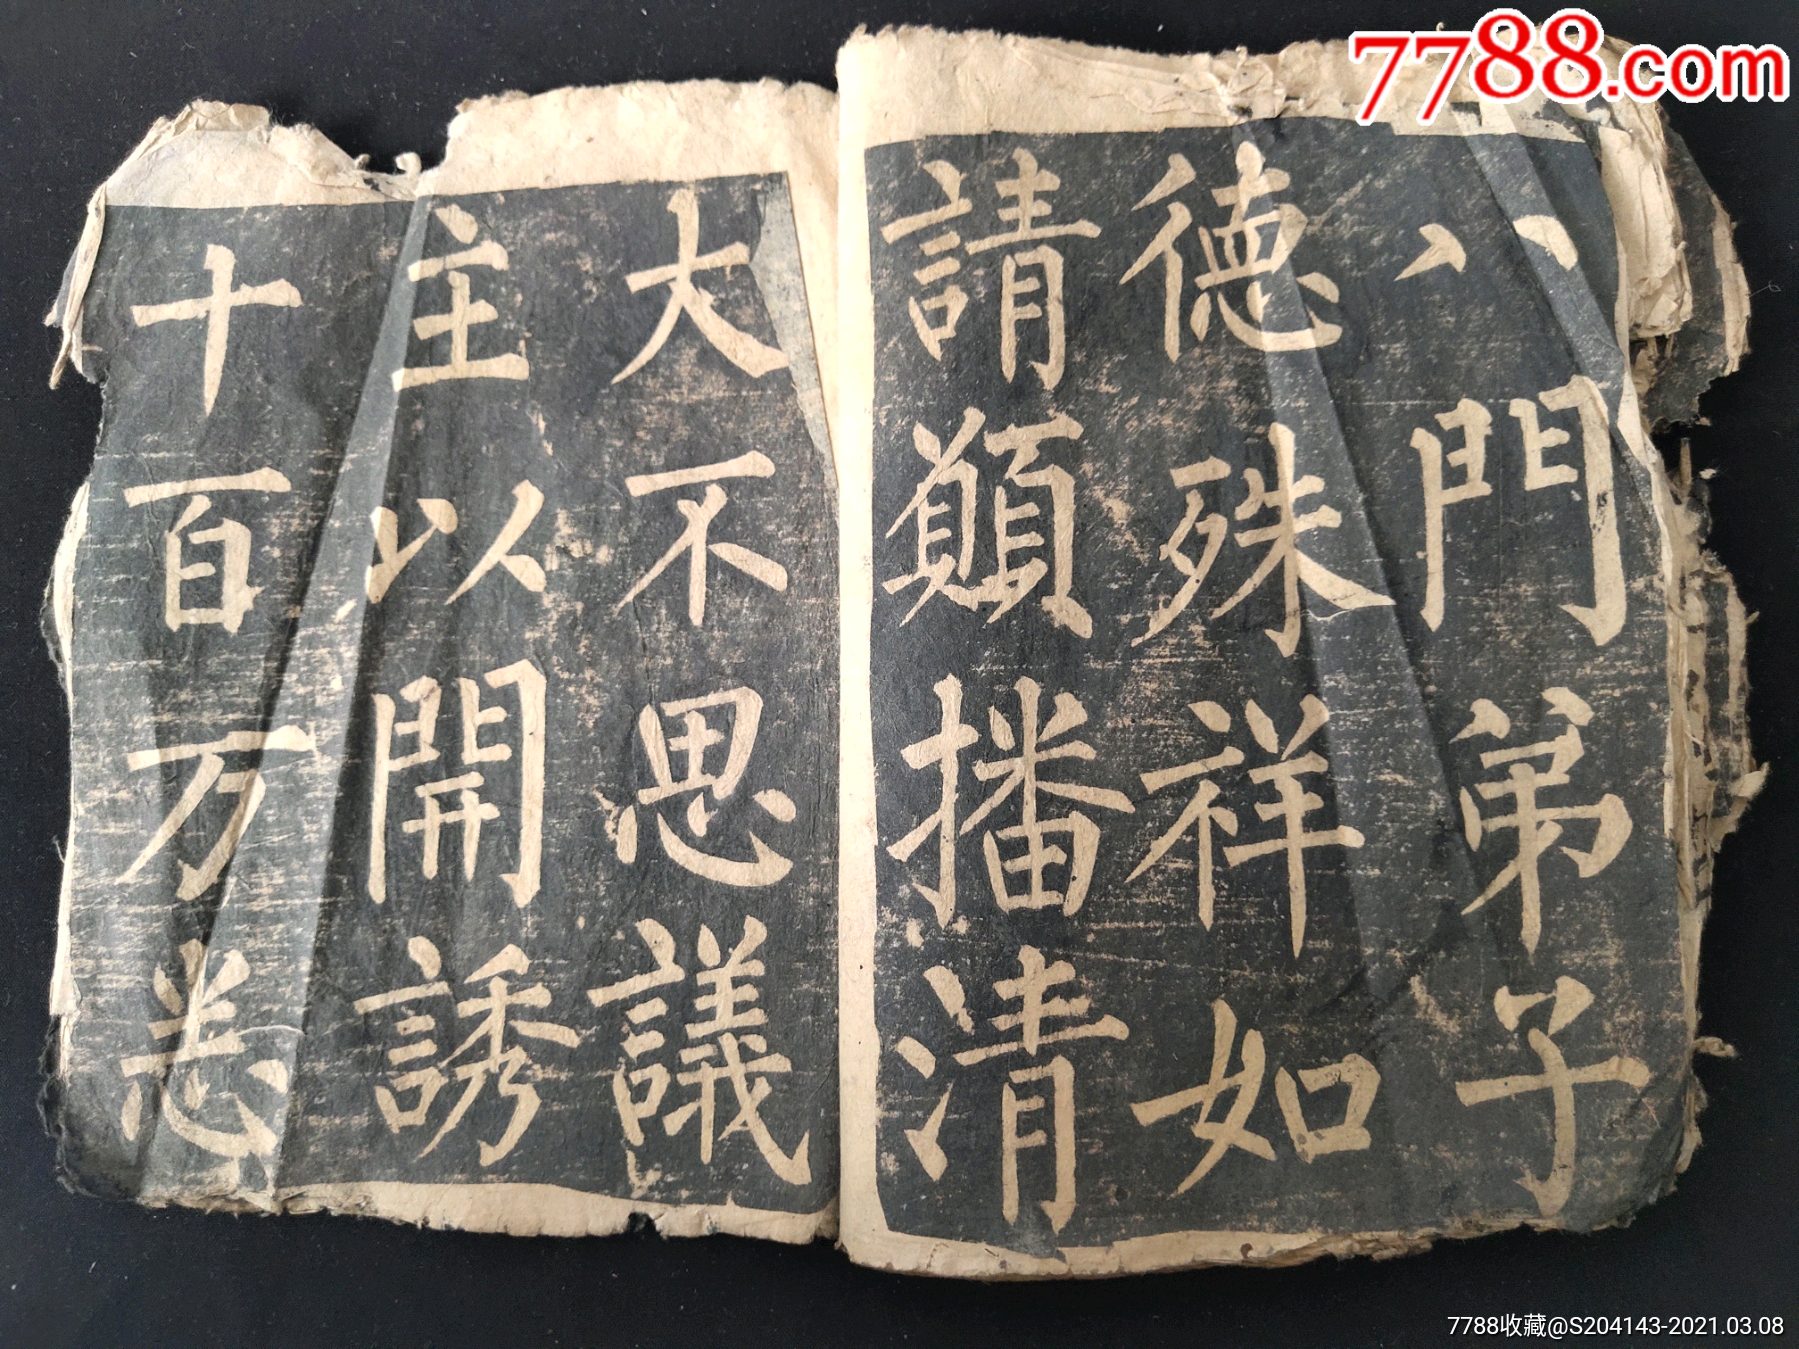 7788.com
八門弟子
德殊祥如
請願播清
大不思議
主以開誘
十百万
7788收藏@S204143-2021.03.08